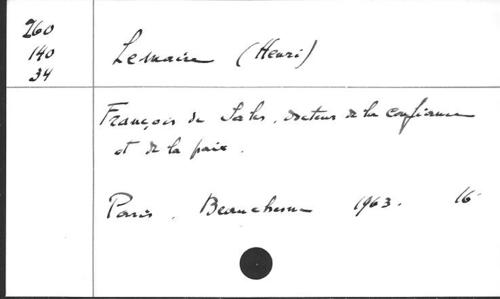 260
140
34
Lemaire (Henri)
François de Sales, docteur de la confiance
et de la paix.
Paris, Beauchesne 1963. 16